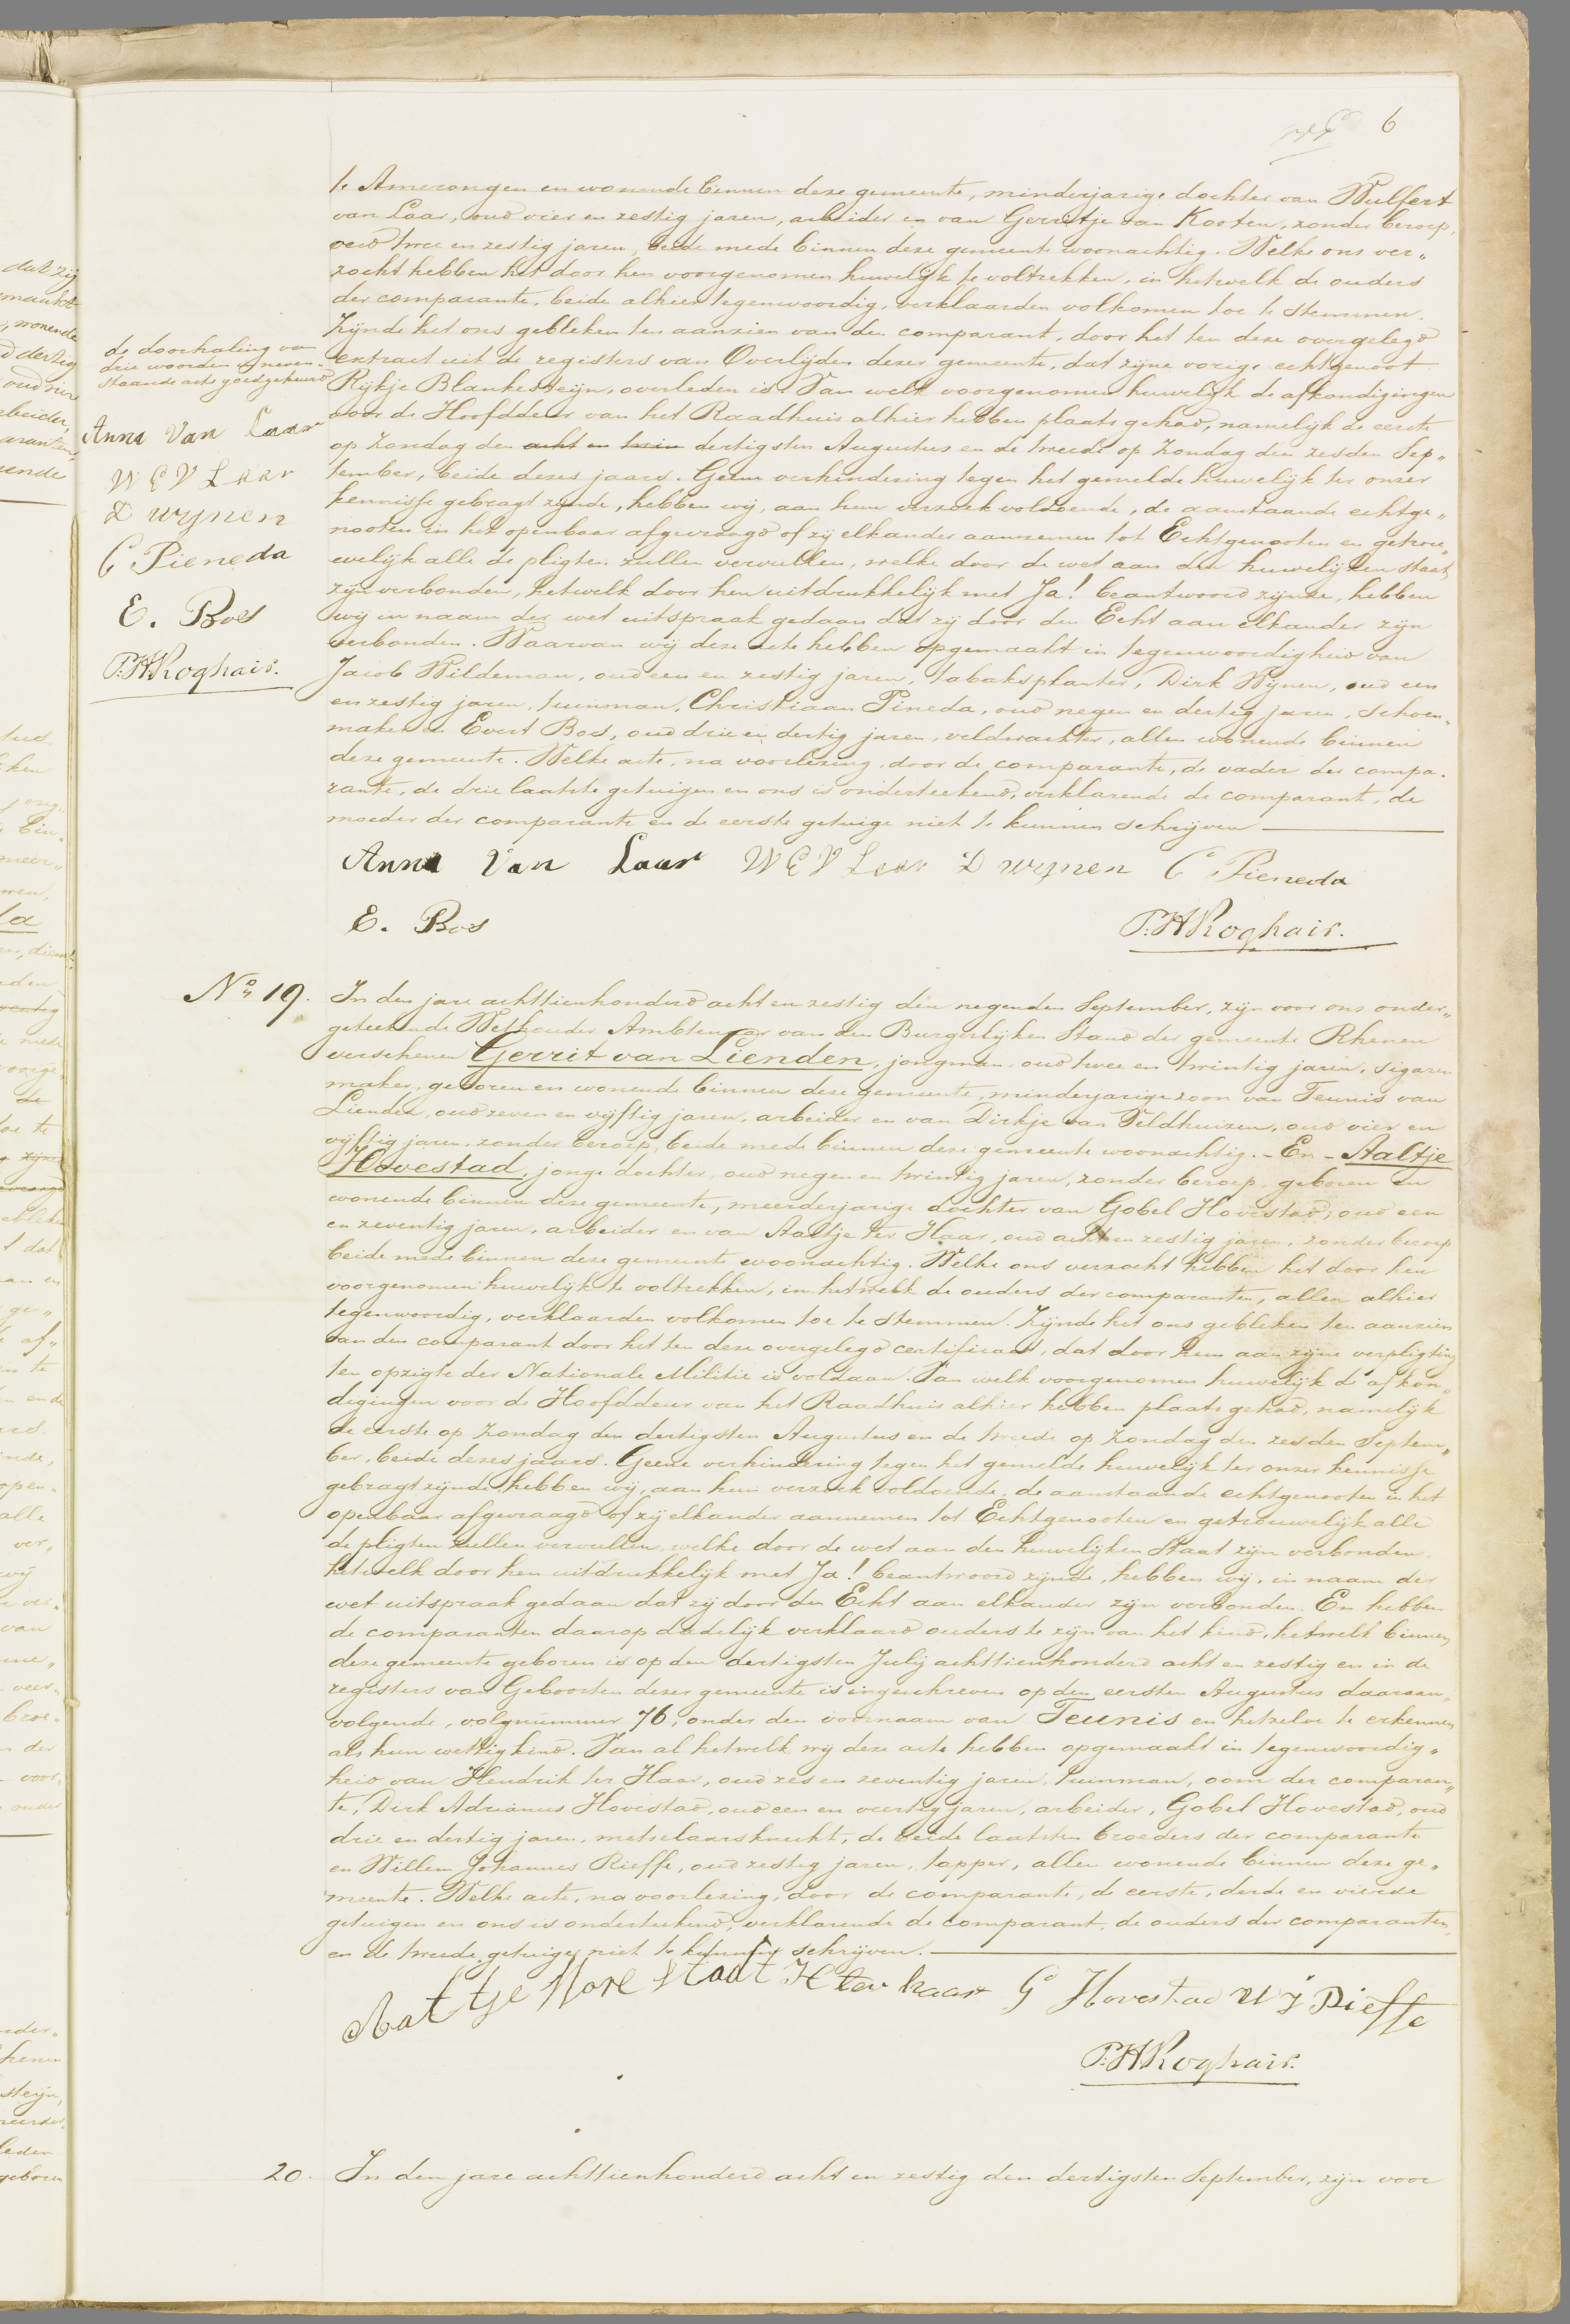 6
te Amerongen en wonende binnen deze gemeente, minderjarige dochter van Wulfert
van Laar, oud vier en zestig jaren, arbeider en van Gerritje van Kooten, zonder beroep,
oud twee en zestig jaren, beide mede binnen deze gemeente woonachtig. Welke ons ver„
zocht hebben het door hen voorgenomen huwelijk te voltrekken, in hetwelk de ouders
der comparante, beide alhier tegenwoordig, verklaarden volkomen toe te stemmen.
Zijnde het ons gebleken ten aanzien van den comparant, door het ten deze overgelegd
extract uit de registers van Overlijden dezer gemeente, dat zijne vorige echtgenoot
Rijkje Blankesteijn, overleden is. Van welk voorgenomen huwelijk de afkondigingen
voor de Hoofddeur van het Raadhuis alhier hebben plaats gehad, namelijk de eerste
op Zondag den acht en twin dertigsten Augustus en de tweede op Zondag den zesden Sep„
tember, beide dezes jaars. Geene verhindering tegen het gemelde huwelijk ter onzer
kennisse gebragt zijnde, hebben wij, aan hun verzoek voldoende, de aanstaande echtge„
nooten in het openbaar afgevraagd of zij elkander aannemen tot Echtgenooten en getrou„
welijk alle de pligten zullen vervullen, welke door de wet aan den huwelijken staat
zijn verbonden, hetwelk door hen uitdrukkelijk met Ja! beantwoord zijnde, hebben
wij in naam der wet uitspraak gedaan dat zij door den Echt aan elkander zijn
verbonden. Waarvan wij deze acte hebben opgemaakt in tegenwoordigheid van
Jacob Wildeman, oud een en zestig jaren, tabaksplanter, Dirk Wijnen, oud een
en zestig jaren, tuinman, Christiaan Pineda, oud negen en dertig jaren, schoen„
maker en Evert Bos, oud drie en dertig jaren, veldwachter, allen wonende binnen
deze gemeente. Welke acte, na voorlezing, door de comparante, de vader der compa„
rante, de drie laatste getuigen en ons is onderteekend, verklarende de comparant, de
moeder der comparante en de eerste getuige niet te kunnen schrijven
Anna Van Laar W E V Laar D wynen C Pieneda
E. Bos P.H Roghair.
de doorhaling van
drie woorden in neven-
staande acte goedgekeurd
Anna Van Laar
W E V Laar
D wynen
C Pieneda
E. Bos
P.H Roghair.
No 19.
In den jare achttienhonderd acht en zestig den negenden September, zijn voor ons onder„
geteekende Wethouder Ambtenaar van den Burgerlijken Stand der gemeente Rhenen
verschenen Gerrit van Lienden, jongman, oud twee en twintig jaren, sigaren
maker, geboren en wonende binnen deze gemeente, minderjarige zoon van Teunis van
Lienden, oud zeven en vijftig jaren, arbeider en van Dirkje van Veldhuizen, oud vier en
vijftig jaren, zonder beroep, beide mede binnen deze gemeente woonachtig. - En - Aaltje
Hovestad, jonge dochter, oud negen en twintig jaren, zonder beroep, geboren en
wonende binnen deze gemeente, meerderjarige dochter van Gobel Hovestad, oud een
en zeventig jaren, arbeider en van Aaltje ter Haar, oud acht en zestig jaren, zonder beroep
beide mede binnen deze gemeente woonachtig. Welke ons verzocht hebben het door hen
voorgenomen huwelijk te voltrekken, in hetwelk de ouders der comparanten, allen alhier
tegenwoordig, verklaarden volkomen toe te stemmen. Zijnde het ons gebleken ten aanzien
van den comparant door het ten deze overgelegd certificaat, dat door hem aan zijne verpligting
ten opzigte der Nationale Militie is voldaan. Van welk voorgenomen huwelijk de afkon„
digingen voor de Hoofddeur van het Raadhuis alhier hebben plaats gehad, namelijk
de eerste op Zondag den dertigsten Augustus en de tweede op Zondag den zesden Septem„
ber, beide dezes jaars. Geene verhindering tegen het gemelde huwelijk ter onzer kennisse
gebragt zijnde hebben wij, aan hun verzoek voldoende, de aanstaande echtgenooten in het
openbaar afgevraagd of zij elkander aannemen tot Echtgenooten en getrouwelijk alle
de pligten zullen vervullen, welke door de wet aan den huwelijken Staat zijn verbonden,
hetwelk door hen uitdrukkelijk met Ja! beantwoord zijnde, hebben wij, in naam der
wet uitspraak gedaan dat zij door den Echt aan elkander zijn verbonden. En hebben
de comparanten daarop dadelijk verklaard ouders te zijn van het kind, hetwelk binnen
deze gemeente geboren is op den dertigsten Julij achttienhonderd acht en zestig en in de
registers van Geboorten dezer gemeente is ingeschreven op den eersten Augustus daaraan„
volgende, volgnummer 76, onder den voornaam van Teunis en hetzelve te erkennen
als hun wettig kind. Van al hetwelk wij deze acte hebben opgemaakt in tegenwoordig„
heid van Hendrik ter Haar, oud zes en zeventig jaren, tuinman, oom der comparan„
te, Dirk Adrianus Hovestad, oud een en veertig jaren, arbeider, Gobel Hovestad, oud
drie en dertig jaren, metselaarsknecht, de beide laatsten broeders der comparante
en Willem Johannes Rieffe, oud zestig jaren, tapper, allen wonende binnen deze ge„
meente. Welke acte, na voorlezing, door de comparante, de eerste, derde en vierde
getuigen en ons is onderteekend, verklarende de comparant, de ouders der comparanten,
en de tweede getuige niet te kunnen schrijven.
Aaltje Hovestadt H ter haar G Hovestad W J Rieffe
P.H Roghair.
20.
In den jare achttienhonderd acht en zestig den dertigsten September, zijn voor